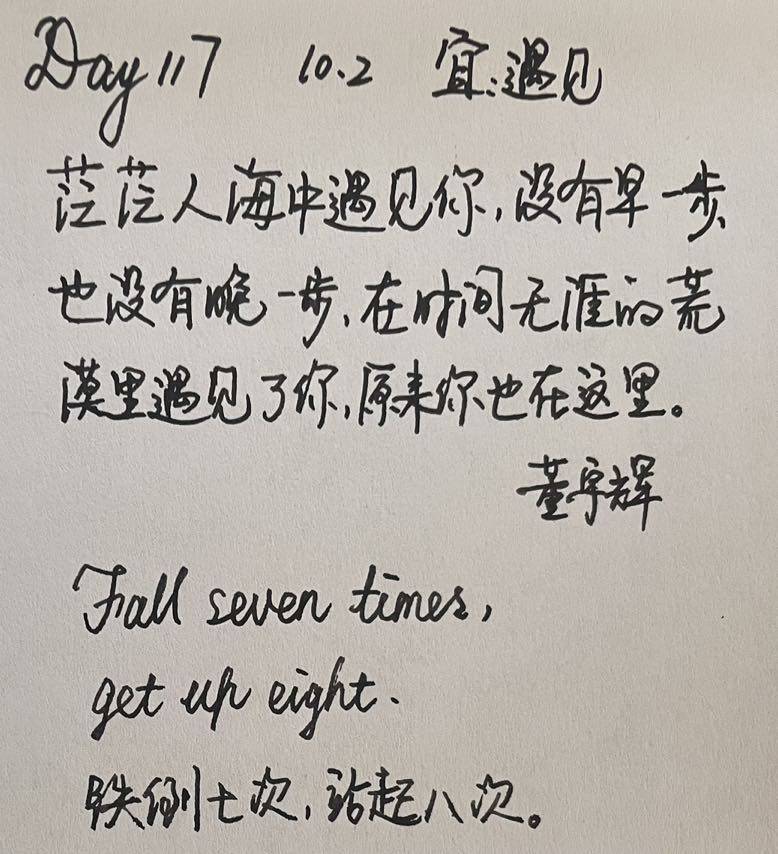 Day 117 10.2 宜:遇见
茫茫人海中遇见你,没有早一步,
也没有晚一步,在时间无涯的荒
漠里遇见了你,原来你也在这里。
董宇辉
Fall seven times,
get up eight.
跌倒七次,站起八次。